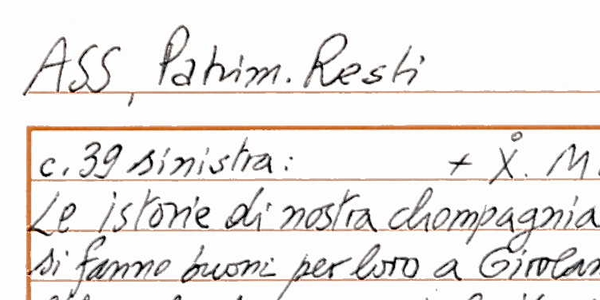 ASS, Patrim. Resti
c. 39 sinistra:
+ X̊. M.
Le istorie di nostra chompagnia
si fanno buoni per loro a Girolam